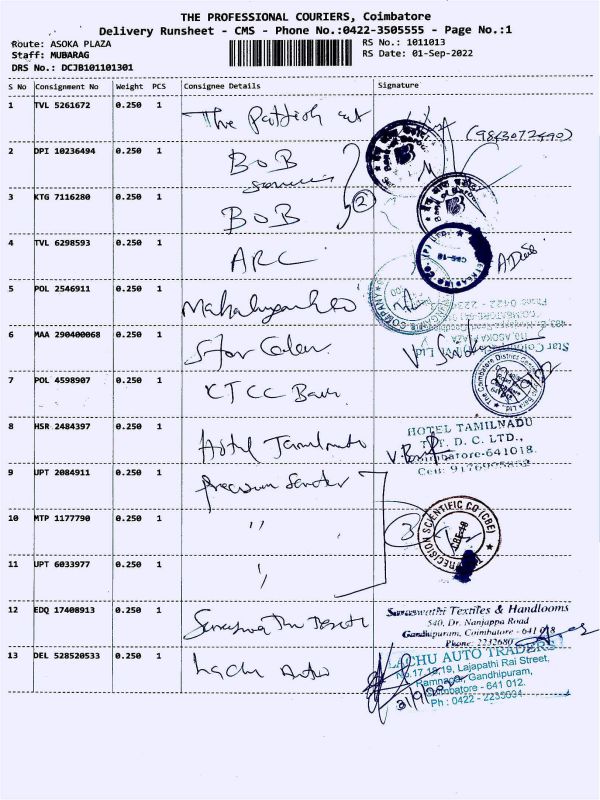 THE PROFESSIONAL COURIERS, Coimbatore
Delivery Runsheet - CMS - Phone No.:0422-3505555 - Page No.:1
Route: ASOKA PLAZA
RS No.: 1011013
Staff: MUBARAG
RS Date: 01-Sep-2022
DRS No.: DCJB101101301
S No Consignment No Weight PCS Consignee Details Signature
1 TVL 5261672 0.250 1 The
(9843072490)
2 DPI 10236494 0.250 1 BOB
3 KTG 7116280 0.250 1 BOB
2
4 TVL 6298593 0.250 1 ARC
CBE-18
5 POL 2546911 0.250 1
6 MAA 290400068 0.250 1 Star Color
110, ASOKA PLAZA
7 POL 4598907 0.250 1
The Coimbatore District
8 HSR 2484397 0.250 1 Hotel Tamilnadu
HOTEL TAMILNADU
T.T.D.C. LTD.,
Coimbatore-641018.
9 UPT 2084911 0.250 1
10 MTP 1177790 0.250 1 "
3
PRECISION SCIENTIFIC CO (CBE)
CBE-18
11 UPT 6033977 0.250 1 "
12 EDQ 17408913 0.250 1
Saraswathi Textiles & Handlooms
540, Dr. Nanjappa Road
Gandhipuram, Coimbatore - 641 018
Phone: 2232680
13 DEL 528520533 0.250 1 Lachu Auto
LACHU AUTO TRADERS
No.17,18,19, Lajapathi Rai Street,
Ramnagar, Gandhipuram,
Coimbatore - 641 012.
Ph : 0422 - 2235034